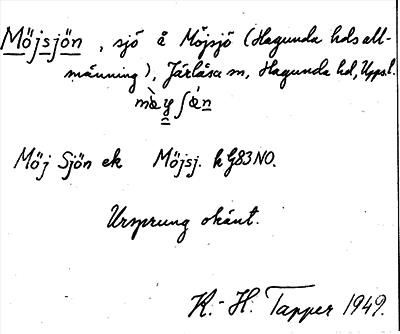 Möjsjön, sjö å Möjsjö (Hagunda hds all-
männing), Järlåsa sn, Hagunda hd, Upps. l.
Möj Sjön ek Möjsj. k G83NO.
Ursprung okänt.
K.-H. Tapper 1949.